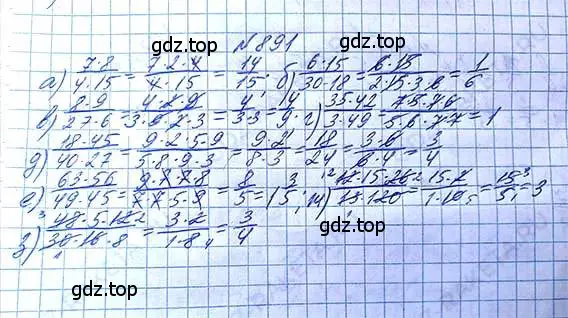 № 891
а) 7·8/4·15 = 7·2·4/4·15 = 14/15; б) 6·15/30·18 = 6·15/2·15·3·6 = 1/6
в) 8·9/27·6 = 4·2·9/3·9·2·3 = 4/3·3 = 4/9; г) 35·42/3·49 =
д) 18·45/40·27 = 9·2·5·9/5·8·9·3 = 9·2/8·3 = 18/24 = 3·6/6·4 = 3/4
е) 63·56/49·45 = 9·7·7·8/7·7·5·9 = 8/5 = 1 3/5; ж) 12·15·26/13·120 = 15·2/1·10 = 15/5 = 3
з) 48·5·12/30·16·8 = 3·2/1·8 = 3/4
gdz.top